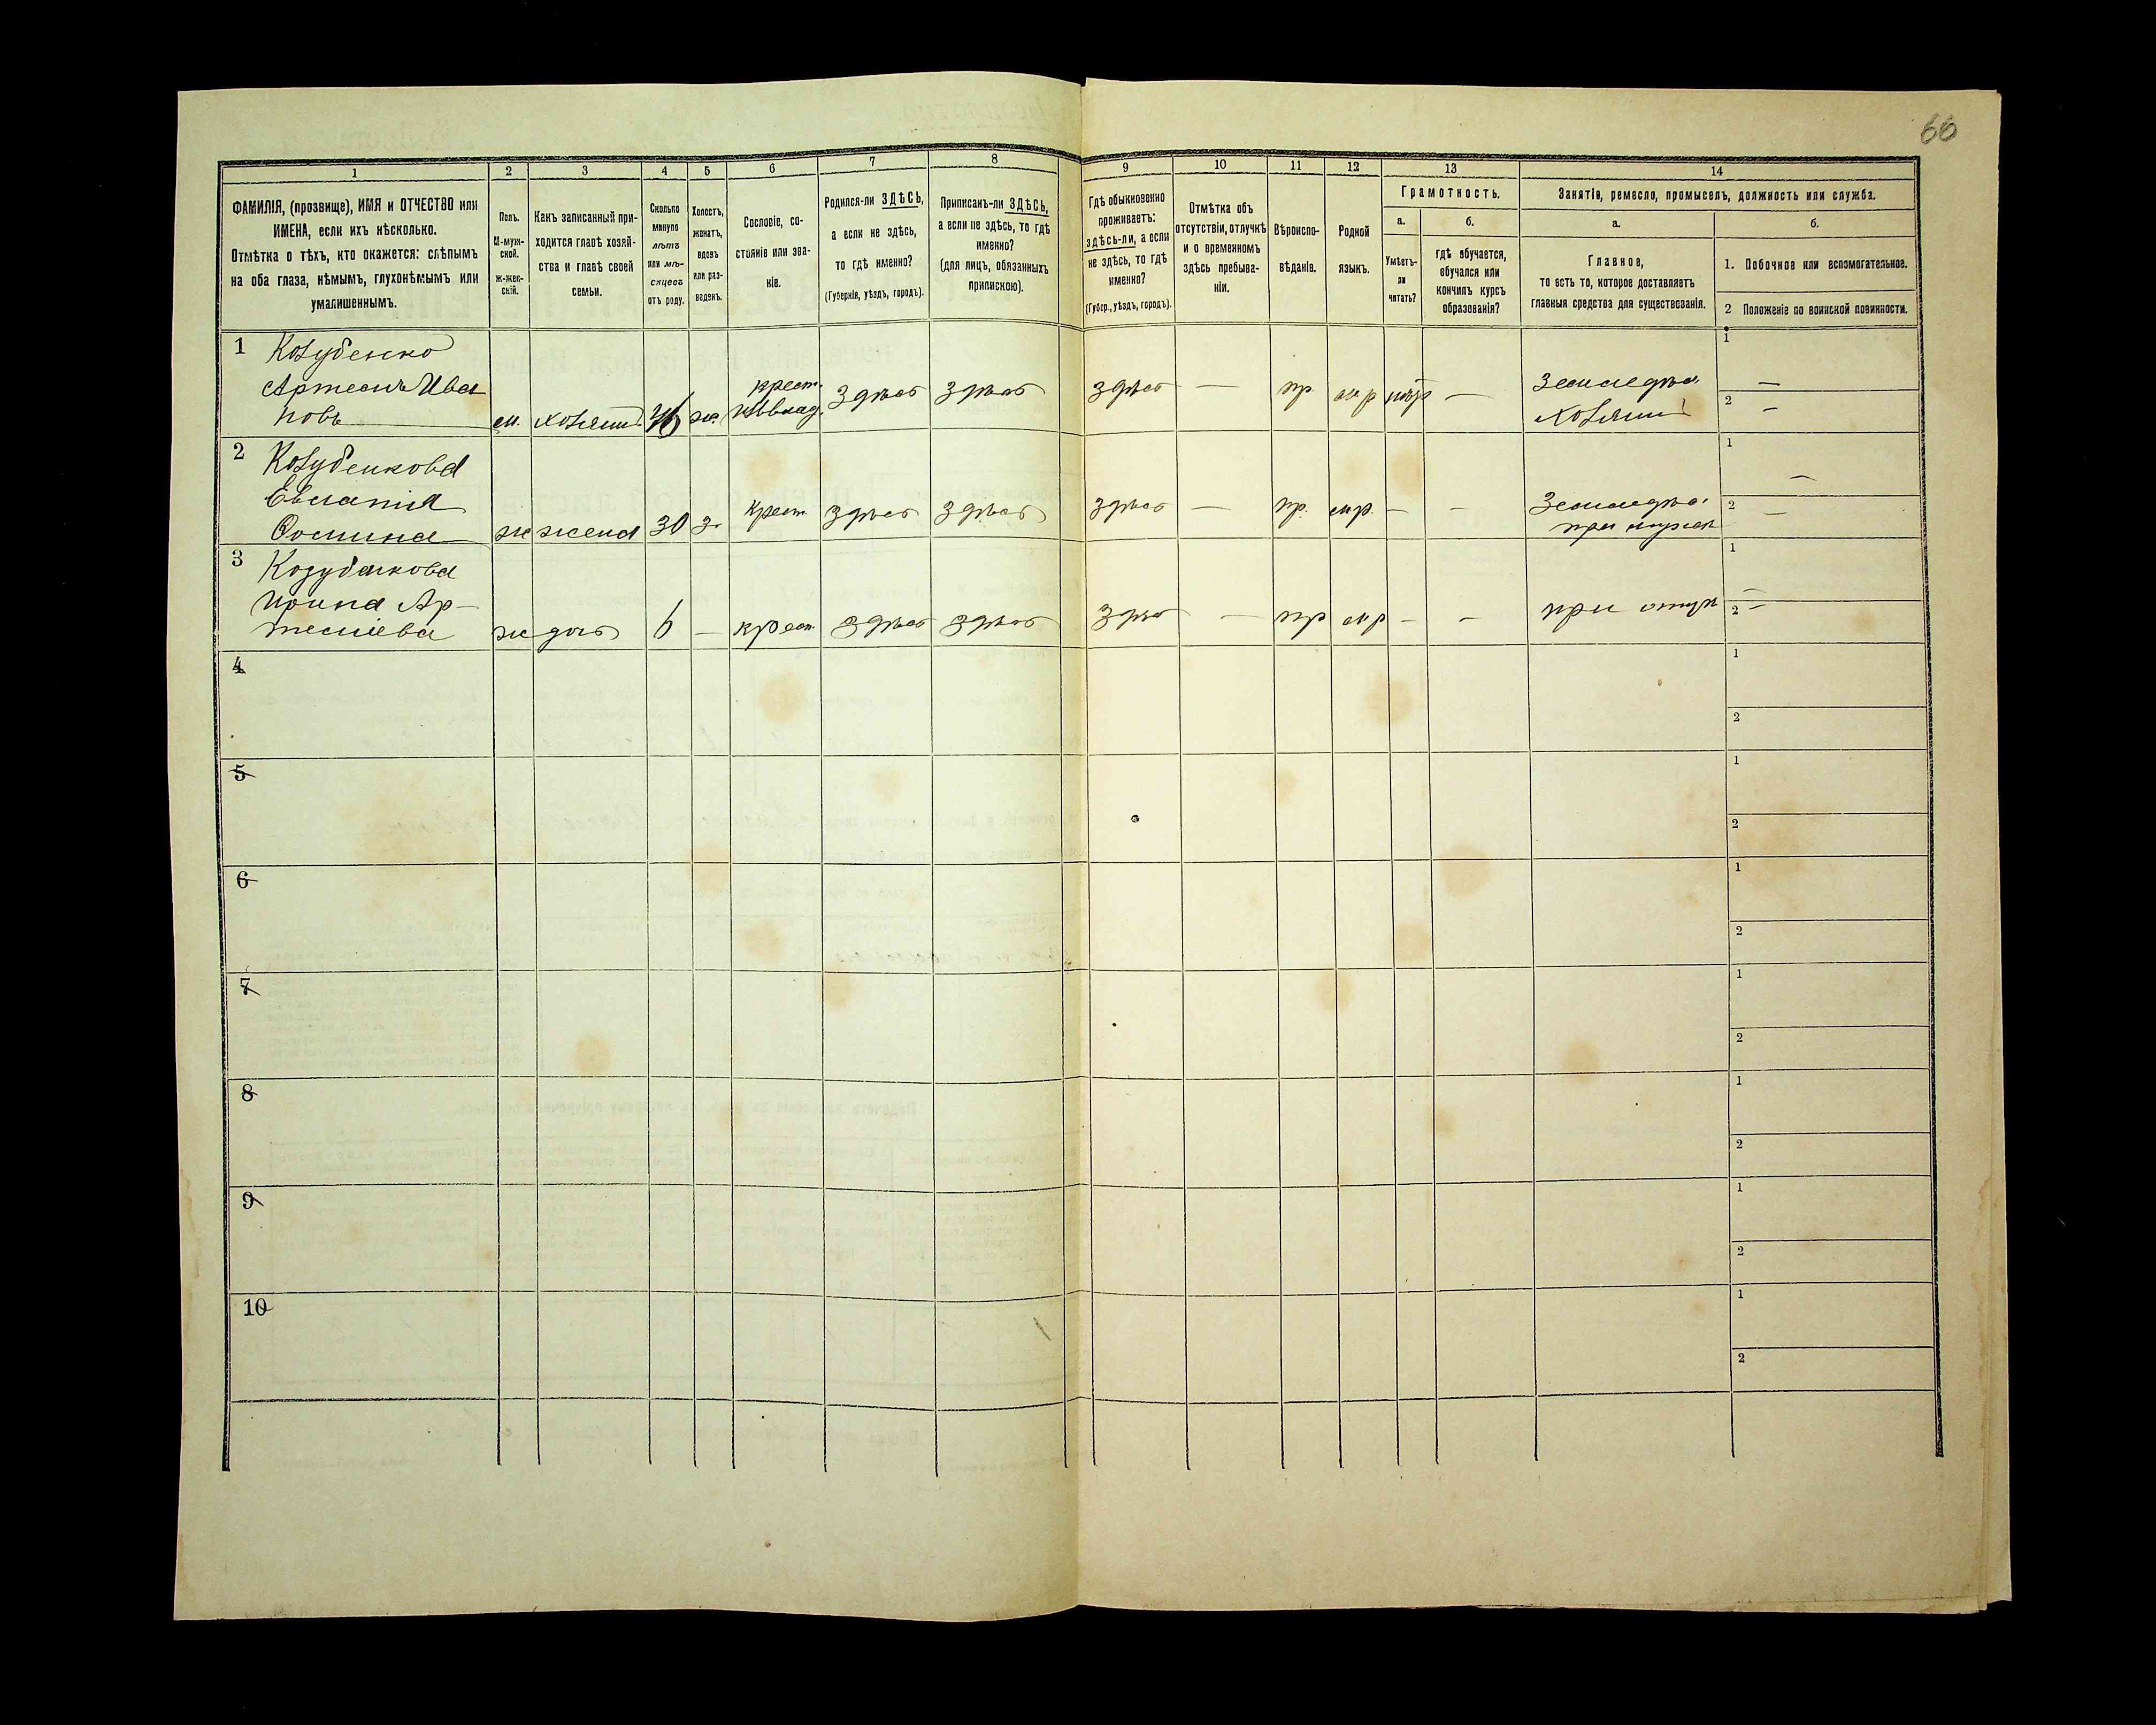 66
1
2
3
4
5
6
7
8
9
10
11
12
13
14
ФАМИЛІЯ, (прозвище), ИМЯ и ОТЧЕСТВО или
ИМЕНА, если ихъ нѣсколько.
Отмѣтка о тѣхъ, кто окажется: слѣпымъ
на оба глаза, нѣмымъ, глухонѣмымъ или
умалишеннымъ.
Полъ.
М-муж-
ской.
ж-жен-
скій.
Какъ записанный при-
ходится главѣ хозяй-
ства и главѣ своей
семьи.
Сколько
минуло
лѣтъ
или мѣ-
сяцевъ
отъ роду.
Холостъ,
женатъ,
вдовъ
или раз-
веденъ.
Сословіе, со-
стояніе или зва-
ніе.
Родился-ли ЗДѢСЬ,
а если не здѣсь,
то гдѣ именно?
(Губернія, уѣздъ, городъ).
Приписанъ-ли ЗДѢСЬ,
а если не здѣсь, то гдѣ
именно?
(для лицъ, обязанныхъ
припискою).
Гдѣ обыкновенно
проживаетъ:
здѣсь-ли, а если
не здѣсь, то гдѣ
именно?
(Губер., уѣздъ, городъ).
Отмѣтка объ
отсутствіи, отлучкѣ
и о временномъ
здѣсь пребыва-
ніи.
Вѣроиспо-
вѣданіе.
Родной
языкъ.
Грамотность.
а.
б.
Умѣетъ-
ли
читать?
гдѣ обучается,
обучался или
кончилъ курсъ
образованія?
Занятіе, ремесло, промыселъ, должность или служба.
а.
б.
Главное,
то есть то, которое доставляетъ
главныя средства для существованія.
1. Побочное или вспомогательное.
2 Положеніе по воинской повинности.
1 Козубенко
Артемъ Ива
новъ
м. хозяинъ ж. крест. здѣсь здѣсь здѣсь — пр мр нѣт —
Земледѣл.
хозяинъ
1 —
2 —
2 Козубенкова
Евгенія
Фомина
ж жена 30 з. крест. здѣсь здѣсь здѣсь — пр. мр. — —
Земледѣл.
при мужѣ
1 —
2 —
3 Козубенкова
Ирина Ар-
темиева
ж дочь 6 — крест здѣсь здѣсь здѣс — пр мр — —
при отцѣ
1 —
2 —
4
1
2
5
1
2
6
1
2
7
1
2
8
1
2
9
1
2
10
1
2